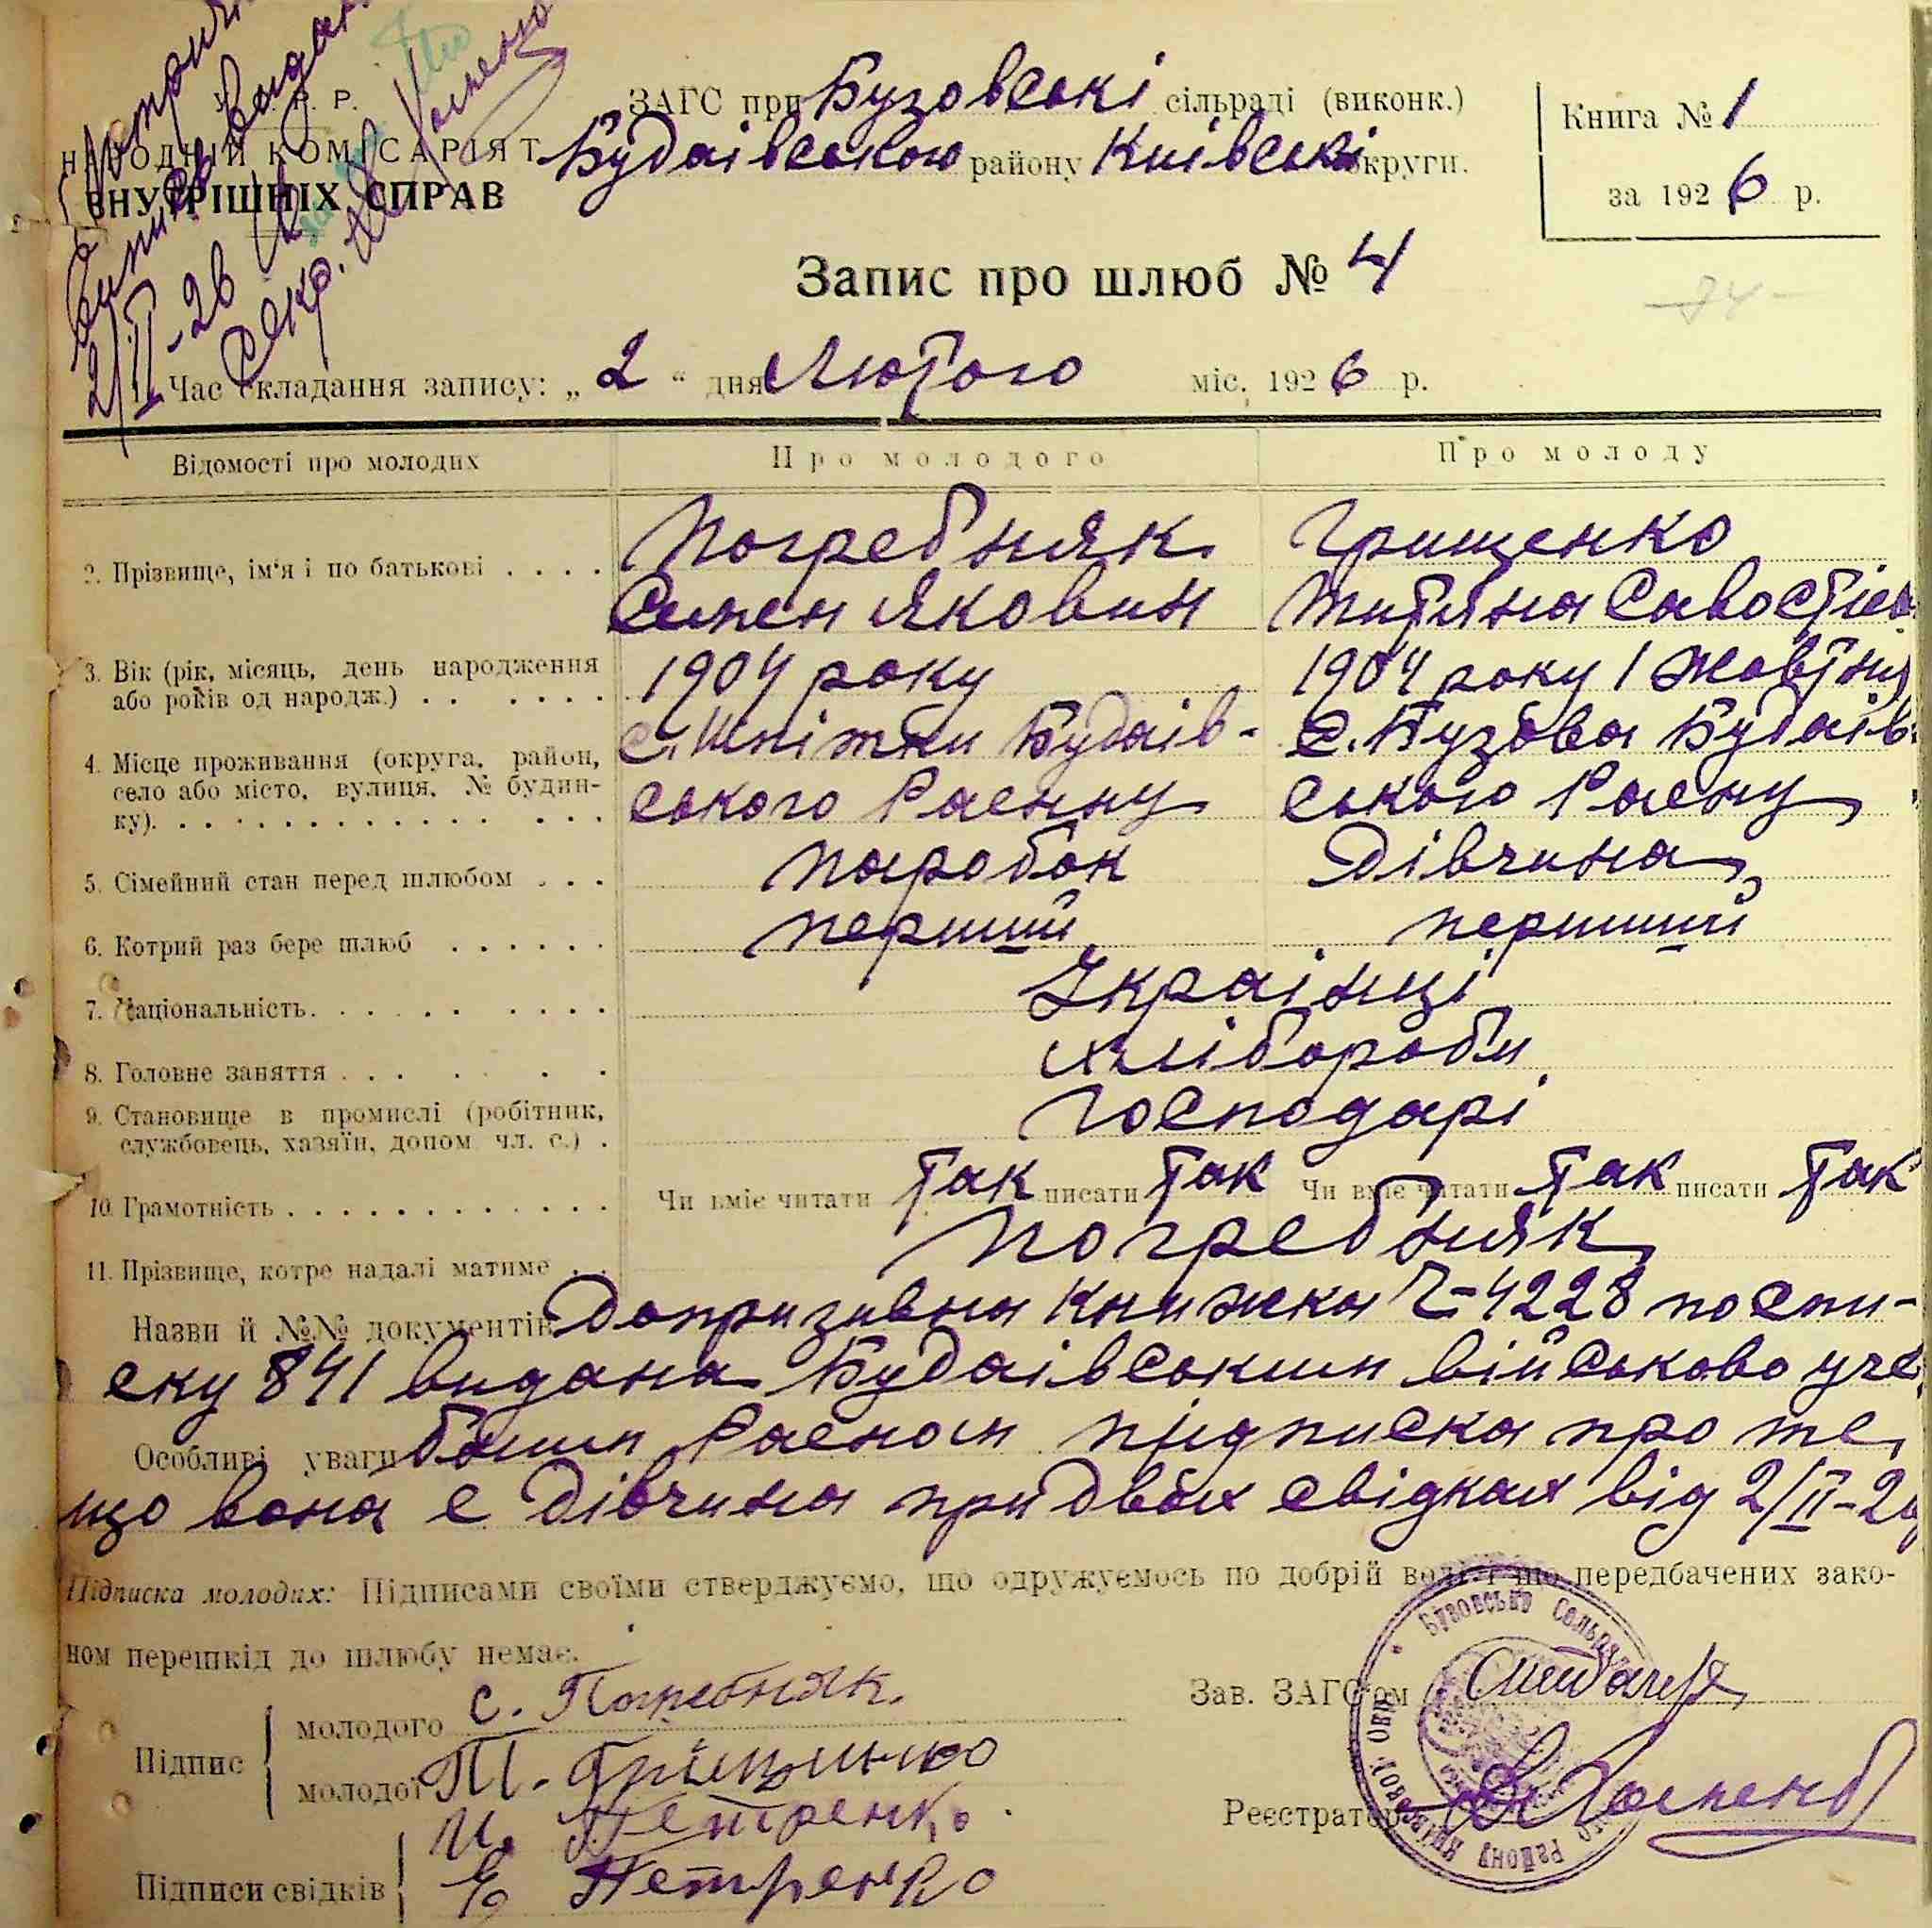 ЗАГС при Бузовські сільраді (виконк.)
Будаівського району Киівські округи.
НАРОДНІЙ КОМІСАРІЯТ
ВНУТРІШНІХ СПРАВ
Книга № 1
за 1926 р.
2/II-26
Секр.
Запис про шлюб № 4
Час складання запису: „2“ дня Лютого міс. 1926 р.
Відомості про молодих Про молодого Про молоду
2. Прізвище, ім'я і по батькові . . . . Погребняк Грищенко
Семен Яковин Титяна Савостіев
3. Вік (рік, місяць, день народження 1904 року 1904 року 1 Жовтня
або років од народж.) . . . . . .
4. Місце проживання (округа, район, с. Шпітьки Будаів- с. Бузова Будаів-
село або місто, вулиця, № будин- ського Раену ського Раену
ку). . . . . . . . . . . . . . . .
5. Сімейний стан перед шлюбом . . . паробок Дівчина
6. Котрий раз бере шлюб . . . . . . перший перший
7. Національність. . . . . . . . . . Украінці
8. Головне заняття . . . . . . хлібороби
9. Становище в промислі (робітник, Господарі
службовець, хазяїн, допом. чл. с.) .
10. Грамотність . . . . . . . . . . . . . Чи вміє читати так писати так Чи вміє читати так писати так
11. Прізвище, котре надалі матиме . . Погребняк
Назви й №№ документів Допризивна Книжка Ч-4228 по спи-
ску 841 видана Будаівським військово уче
Особливі уваги бним Раеном підписка про те
що вона є дівчина при двох свідках від 2/II-26
Підписка молодих: Підписами своїми стверджуємо, що одружуємось по добрій волі і що передбачених зако-
ном перешкід до шлюбу немає.
Підпис молодого С. Погребняк.
молодої Т. Гріщинко
Підписи свідків И. Петренко
Е Петренко
Зав. ЗАГС'ом
Реєстратор